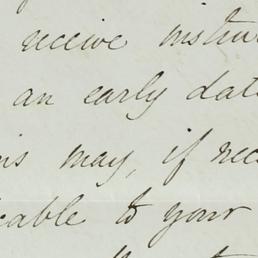 receive instru
an early date
may, if rec
to your